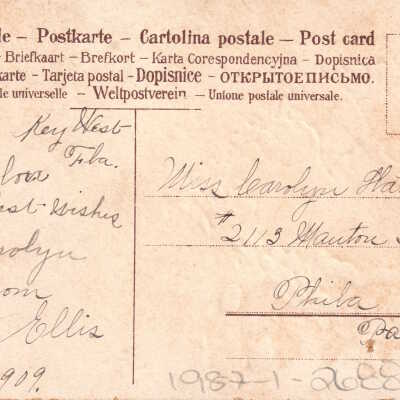 le – Postkarte – Cartolina postale – Post card
– Briefkaart – Brefkort – Karta Corespondencyjna – Dopisnica
karte – Tarjeta postal – Dopisnice – ОТКРЫТОЕПИСЬМО.
ale universelle – Weltpostverein – Unione postale universale.
Key West
Fla.
est Wishes
arolyn
om
Ellis
909.
Miss Carolyn Ha
#2113 Manton
Phila
Pa
1987-1-2688